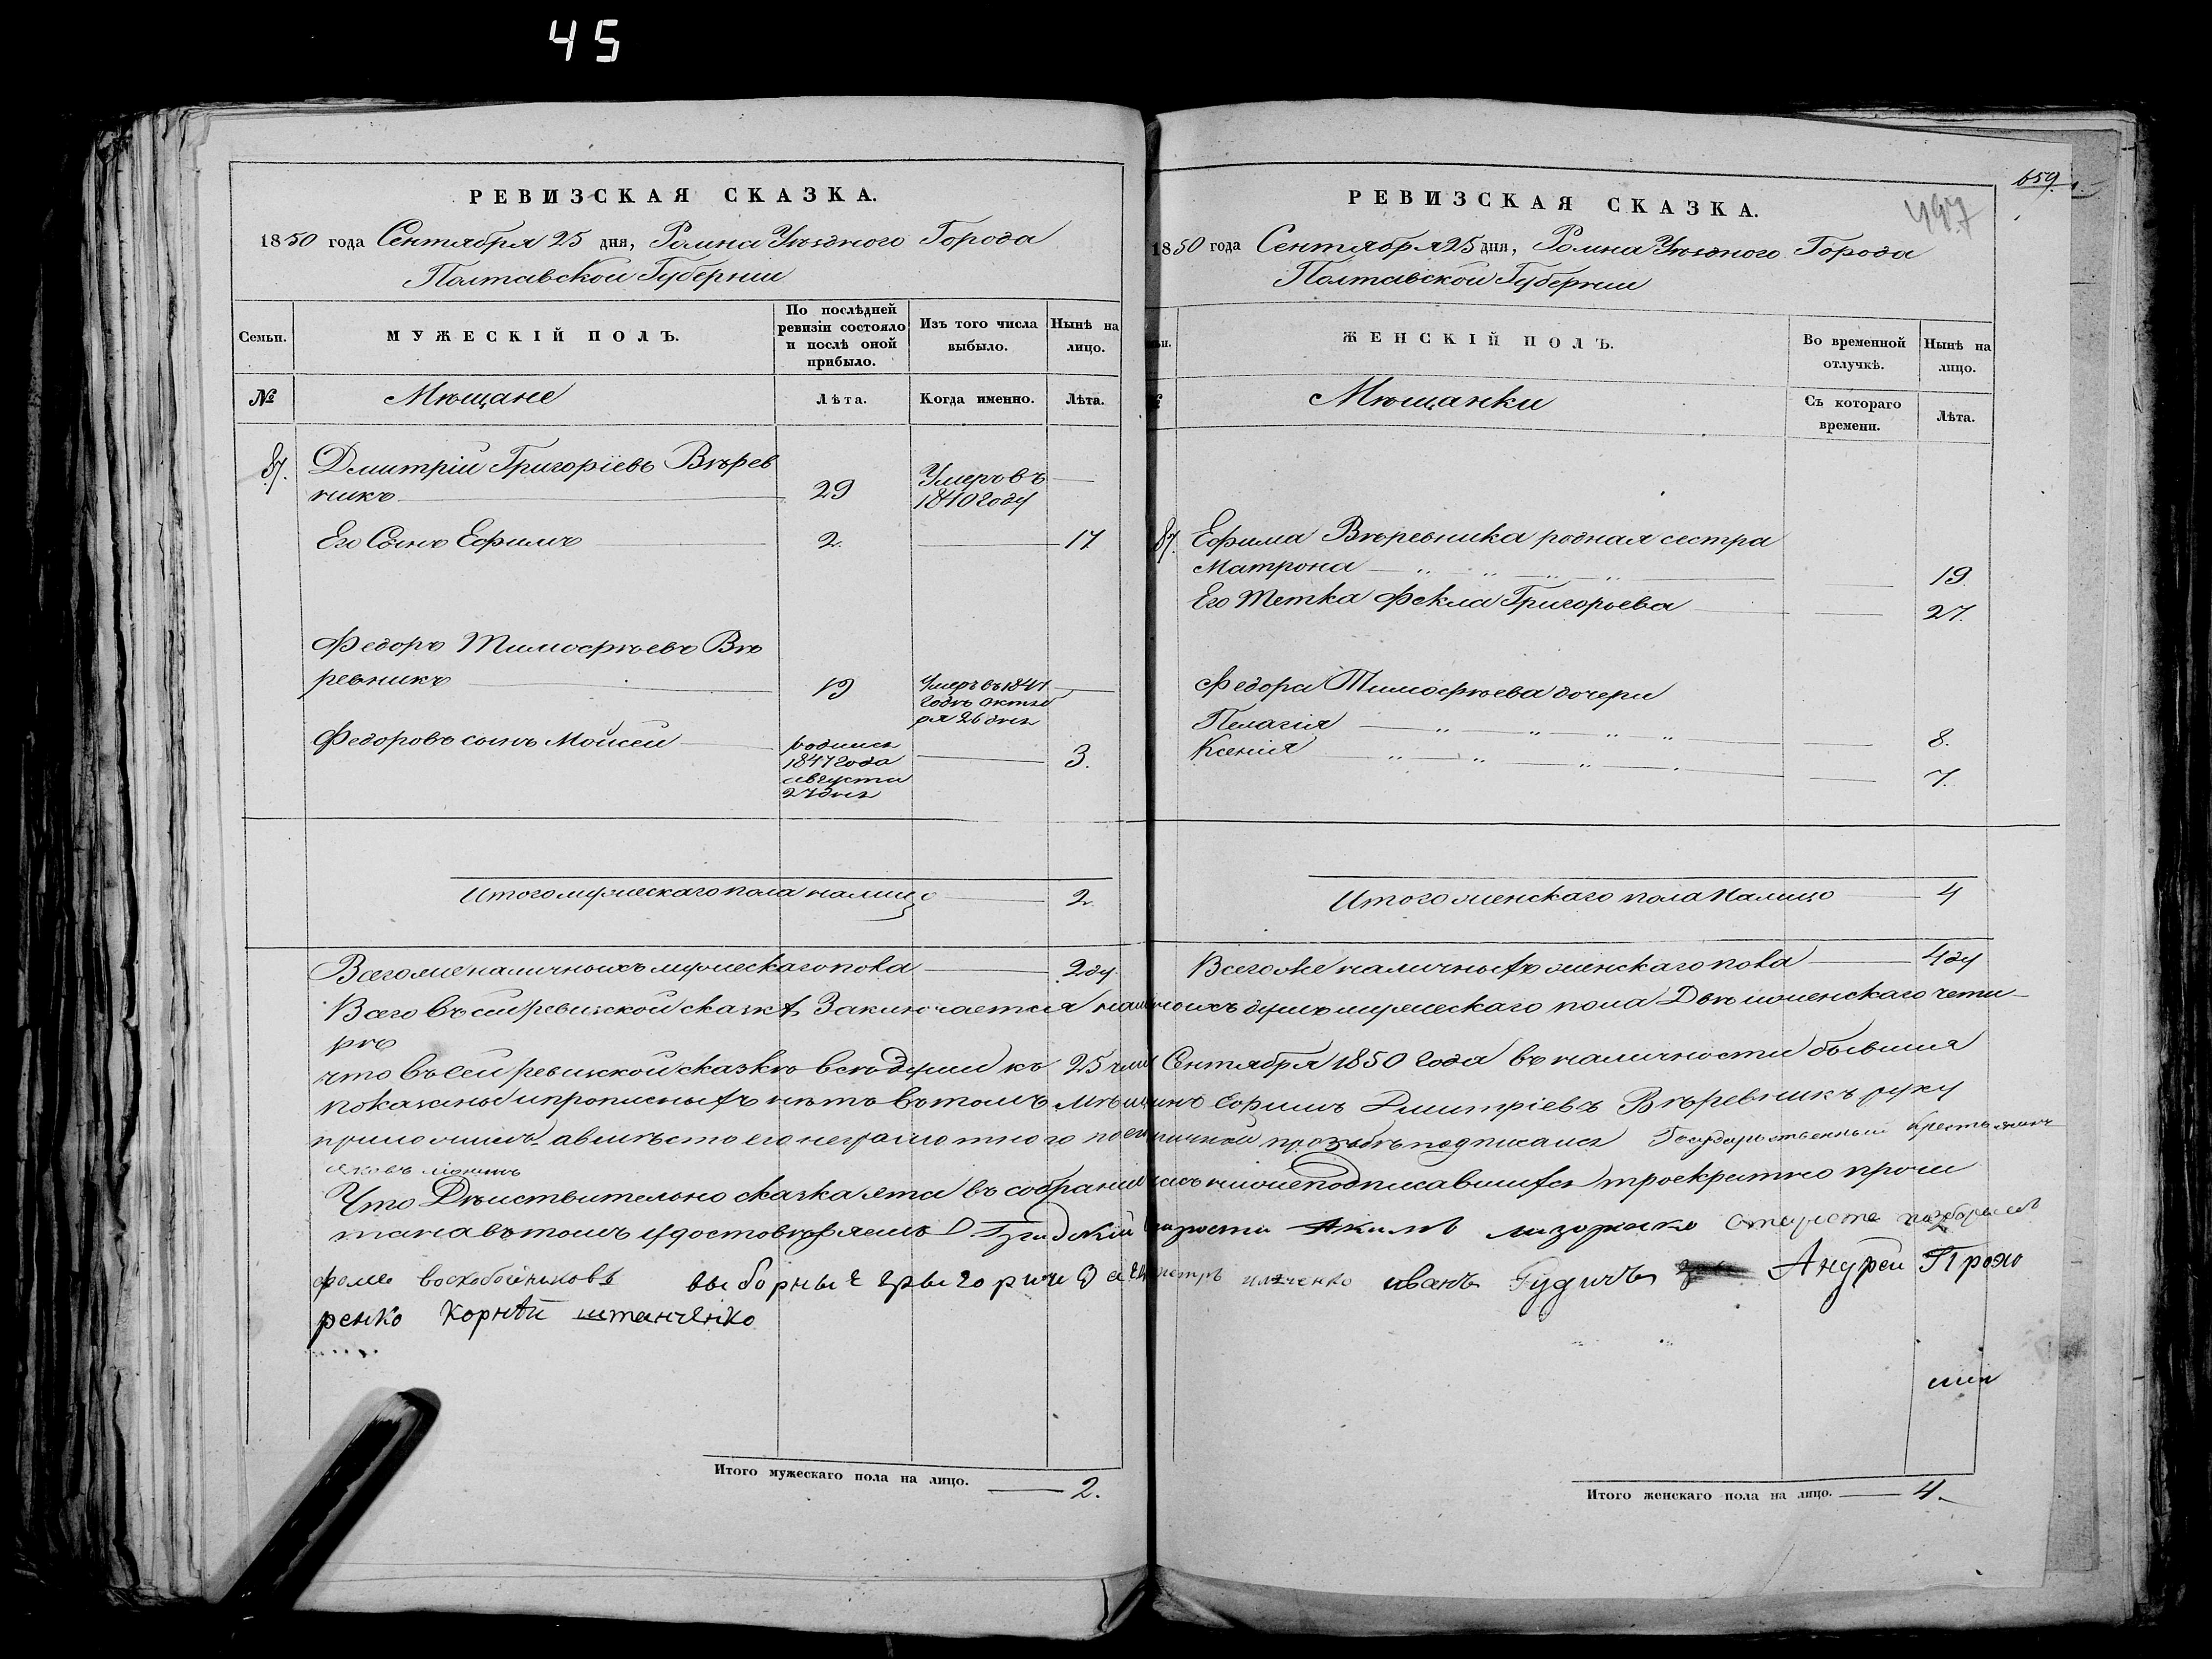 45
РЕВИЗСКАЯ СКАЗКА.
1850 года Сентября 25 дня, Ромна Уѣзднаго Города
Полтавской Губерніи
Семьи.
МУЖЕСКІЙ ПОЛЪ.
По послѣдней ревизіи состояло и послѣ оной прибыло.
Изъ того числа выбыло.
Нынѣ на лицо.
№
Мѣщане
Лѣта.
Когда именно.
Лѣта.
87. Дмитрій Григоріевъ Вѣрев
никъ 29 Умеръ въ 1840 году
Его Сынъ Ефимъ 2. 17
Федоръ Тимофѣевъ Вѣ
ревникъ 19 Умеръ въ 1847 годѣ октяб ря 26 дня
Федоровъ сынъ Мойсей родился 1847 года августа 27 дня 3.
Итого мужескаго пола налицо 2.
Всего же наличныхъ мужескаго пола 2 ду.
РЕВИЗСКАЯ СКАЗКА.
659.
497
1850 года Сентября 25 дня, Ромна Уѣзднаго Города
Полтавской Губерніи
ЖЕНСКІЙ ПОЛЪ.
Во временной отлучкѣ.
Нынѣ на лицо.
Мѣщанки
Съ котораго времени.
Лѣта.
87. Ефима Вѣревника родная сестра
Матрона 19
Его Тетка Фекла Григорьева 27.
Федора Тимофѣева дочери
Пелагія 8.
Ксенія 7.
Итого женскаго пола Налицо 4
Всего же наличныхъ женскаго пола 4 ду
Всего въ сей ревизской сказкѣ Заключается наличныхъ душъ мужескаго пола Двѣ и женскаго четы-
рѣ
что въ сей ревизской сказкѣ всѣ души къ 25 числу Сентября 1850 года въ наличности бывшия
показаны и прописныхъ нѣтъ въ томъ Мѣщанинъ Ефимъ Дмитріевъ Вѣревникъ руку
приложилъ а вмѣсто его неграмотного по его личной прозьбѣ подписался Государственный крестьянинъ
Яковъ
Что Дѣйствительно сказка эта въ собраніи насъ ниже подписавшихся троекратно прочи
тана въ томъ удостовѣряемъ Градскій староста Акимъ лазоренко староста
фома воскобойниковъ выборные петръ ильченко иванъ Гудимъ Андрей Прохо
ренко Корнѣй штанченко
Итого мужескаго пола на лицо. 2.
Итого женскаго пола на лицо. 4.